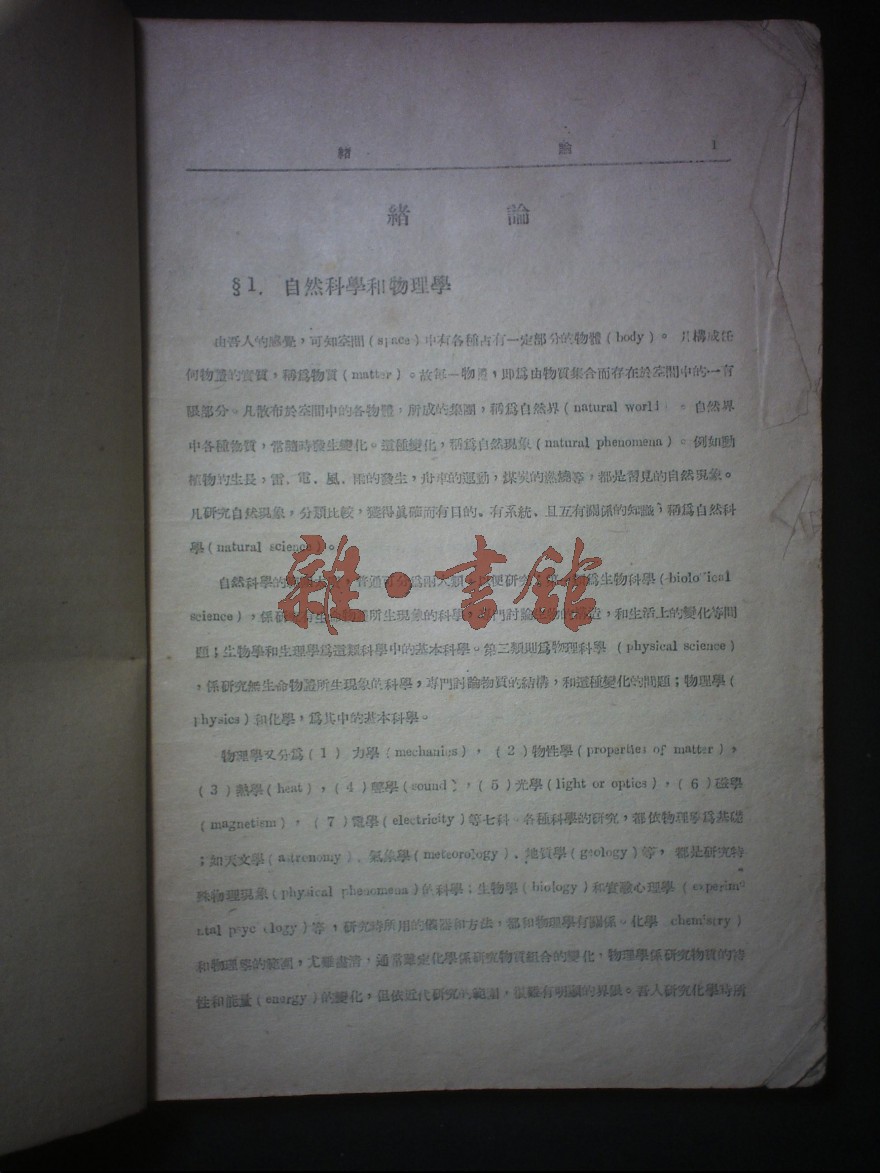 緒 論 1
緒 論
§1. 自然科學和物理學
由吾人的感覺，可知空間(space)中有各種占有一定部分的物體(body)。凡構成任
何物體的實質，稱爲物質(matter)。故每一物體，即爲由物質集合而存在於空間中的一有
限部分。凡散布於空間中的各物體，所成的集團，稱爲自然界(natural world)。自然界
中各種物質，常隨時發生變化。這種變化，稱爲自然現象(natural phenomena)。例如動
植物的生長，雷、電、風、雨的發生，舟車的運動，煤炭的燃燒等，都是習見的自然現象。
凡研究自然現象，分類比較，獲得眞確而有目的、有系統、且互有關係的知識，稱爲自然科
學(natural science)。
雜·書館
自然科學的 普通可分爲兩大類 以便研究 爲生物科學(biological
science)，係研究有生命物體所生現象的科學，專門討論 的構造，和生活上的變化等問
題；生物學和生理學爲這類科學中的基本科學。第二類則爲物理科學 (physical science)
，係研究無生命物體所生現象的科學，專門討論物質的結構，和這種變化的問題；物理學(
physics)和化學，爲其中的基本科學。
物理學又分爲(1) 力學(mechanics)， (2)物性學(properties of matter)，
(3)熱學(heat)，(4)聲學(sound)，(5)光學(light or optics)，(6)磁學
(magnetism)， (7)電學(electricity)等七科 各種科學的研究，都依物理學爲基礎
；如天文學(astronomy)、氣象學(meteorology)、地質學(geology)等， 都是研究特
殊物理現象(physical phenomena)的科學；生物學(biology)和實驗心理學 (experime
ntal psychology)等，研究時所用的儀器和方法，都和物理學有關係。化學 chemistry)
和物理學的範圍，尤難畫清，通常雖定化學係研究物質組合的變化，物理學係研究物質的特
性和能量(energy)的變化，但依近代研究的範圍，很難有明顯的界限。吾人研究化學時所